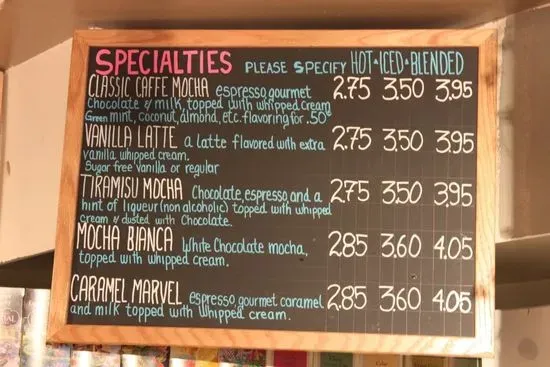 SPECIALTIES PLEASE SPECIFY HOT ICED BLENDED
CLASSIC CAFFE MOCHA espresso gourmet 2.75 3.50 3.95
Chocolate & milk, topped with whipped cream
Green mint, coconut, almond, etc. flavoring for .50¢
VANILLA LATTE a latte flavored with extra 2.75 3.50 3.95
vanilla whipped cream.
Sugar free vanilla or regular
TIRAMISU MOCHA Chocolate, espresso, and a 2.75 3.50 3.95
hint of liqueur (non alcoholic) topped with whipped
cream & dusted with Chocolate.
MOCHA BIANCA White Chocolate mocha, 2.85 3.60 4.05
topped with whipped cream.
CARAMEL MARVEL espresso, gourmet caramel 2.85 3.60 4.05
and milk topped with whipped cream.